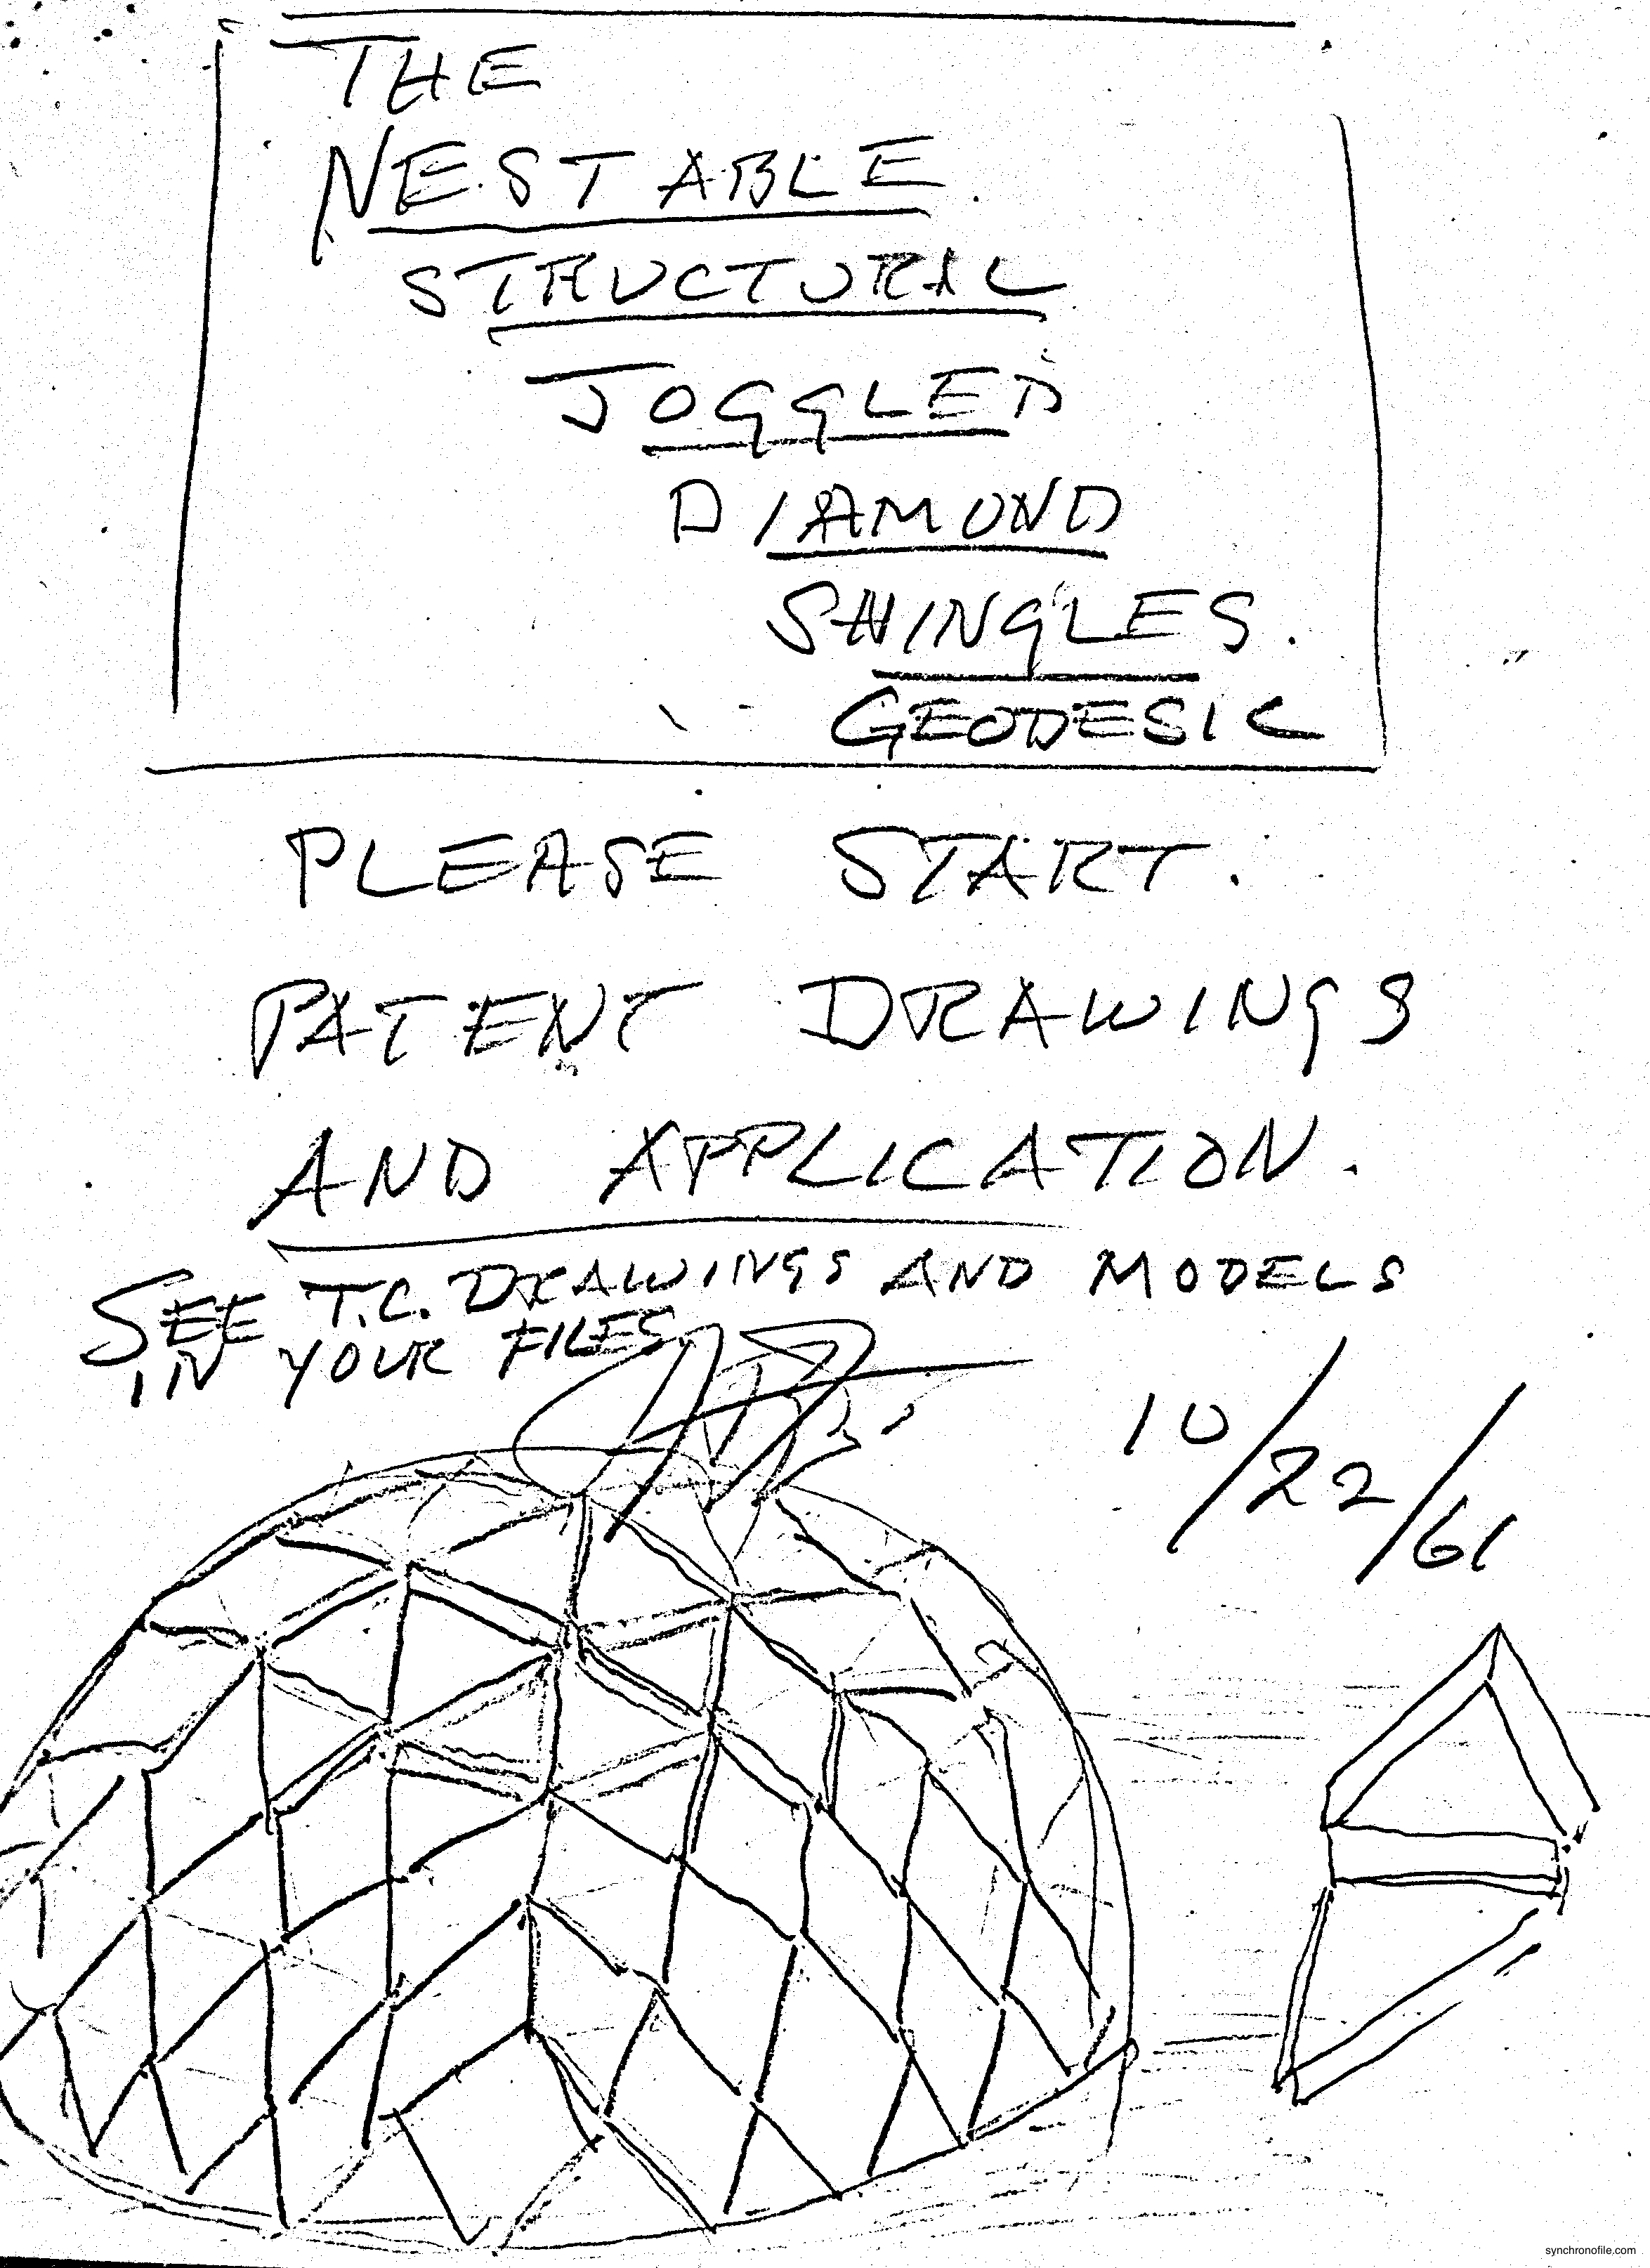 THE
NESTABLE
STRUCTURAL
JOGGLED
DIAMOND
SHINGLES.
GEODESIC
PLEASE START.
PATENT DRAWINGS
AND APPLICATION.
SEE T.C. DRAWINGS AND MODELS
IN YOUR FILES
10/22/61
synchronofile.com